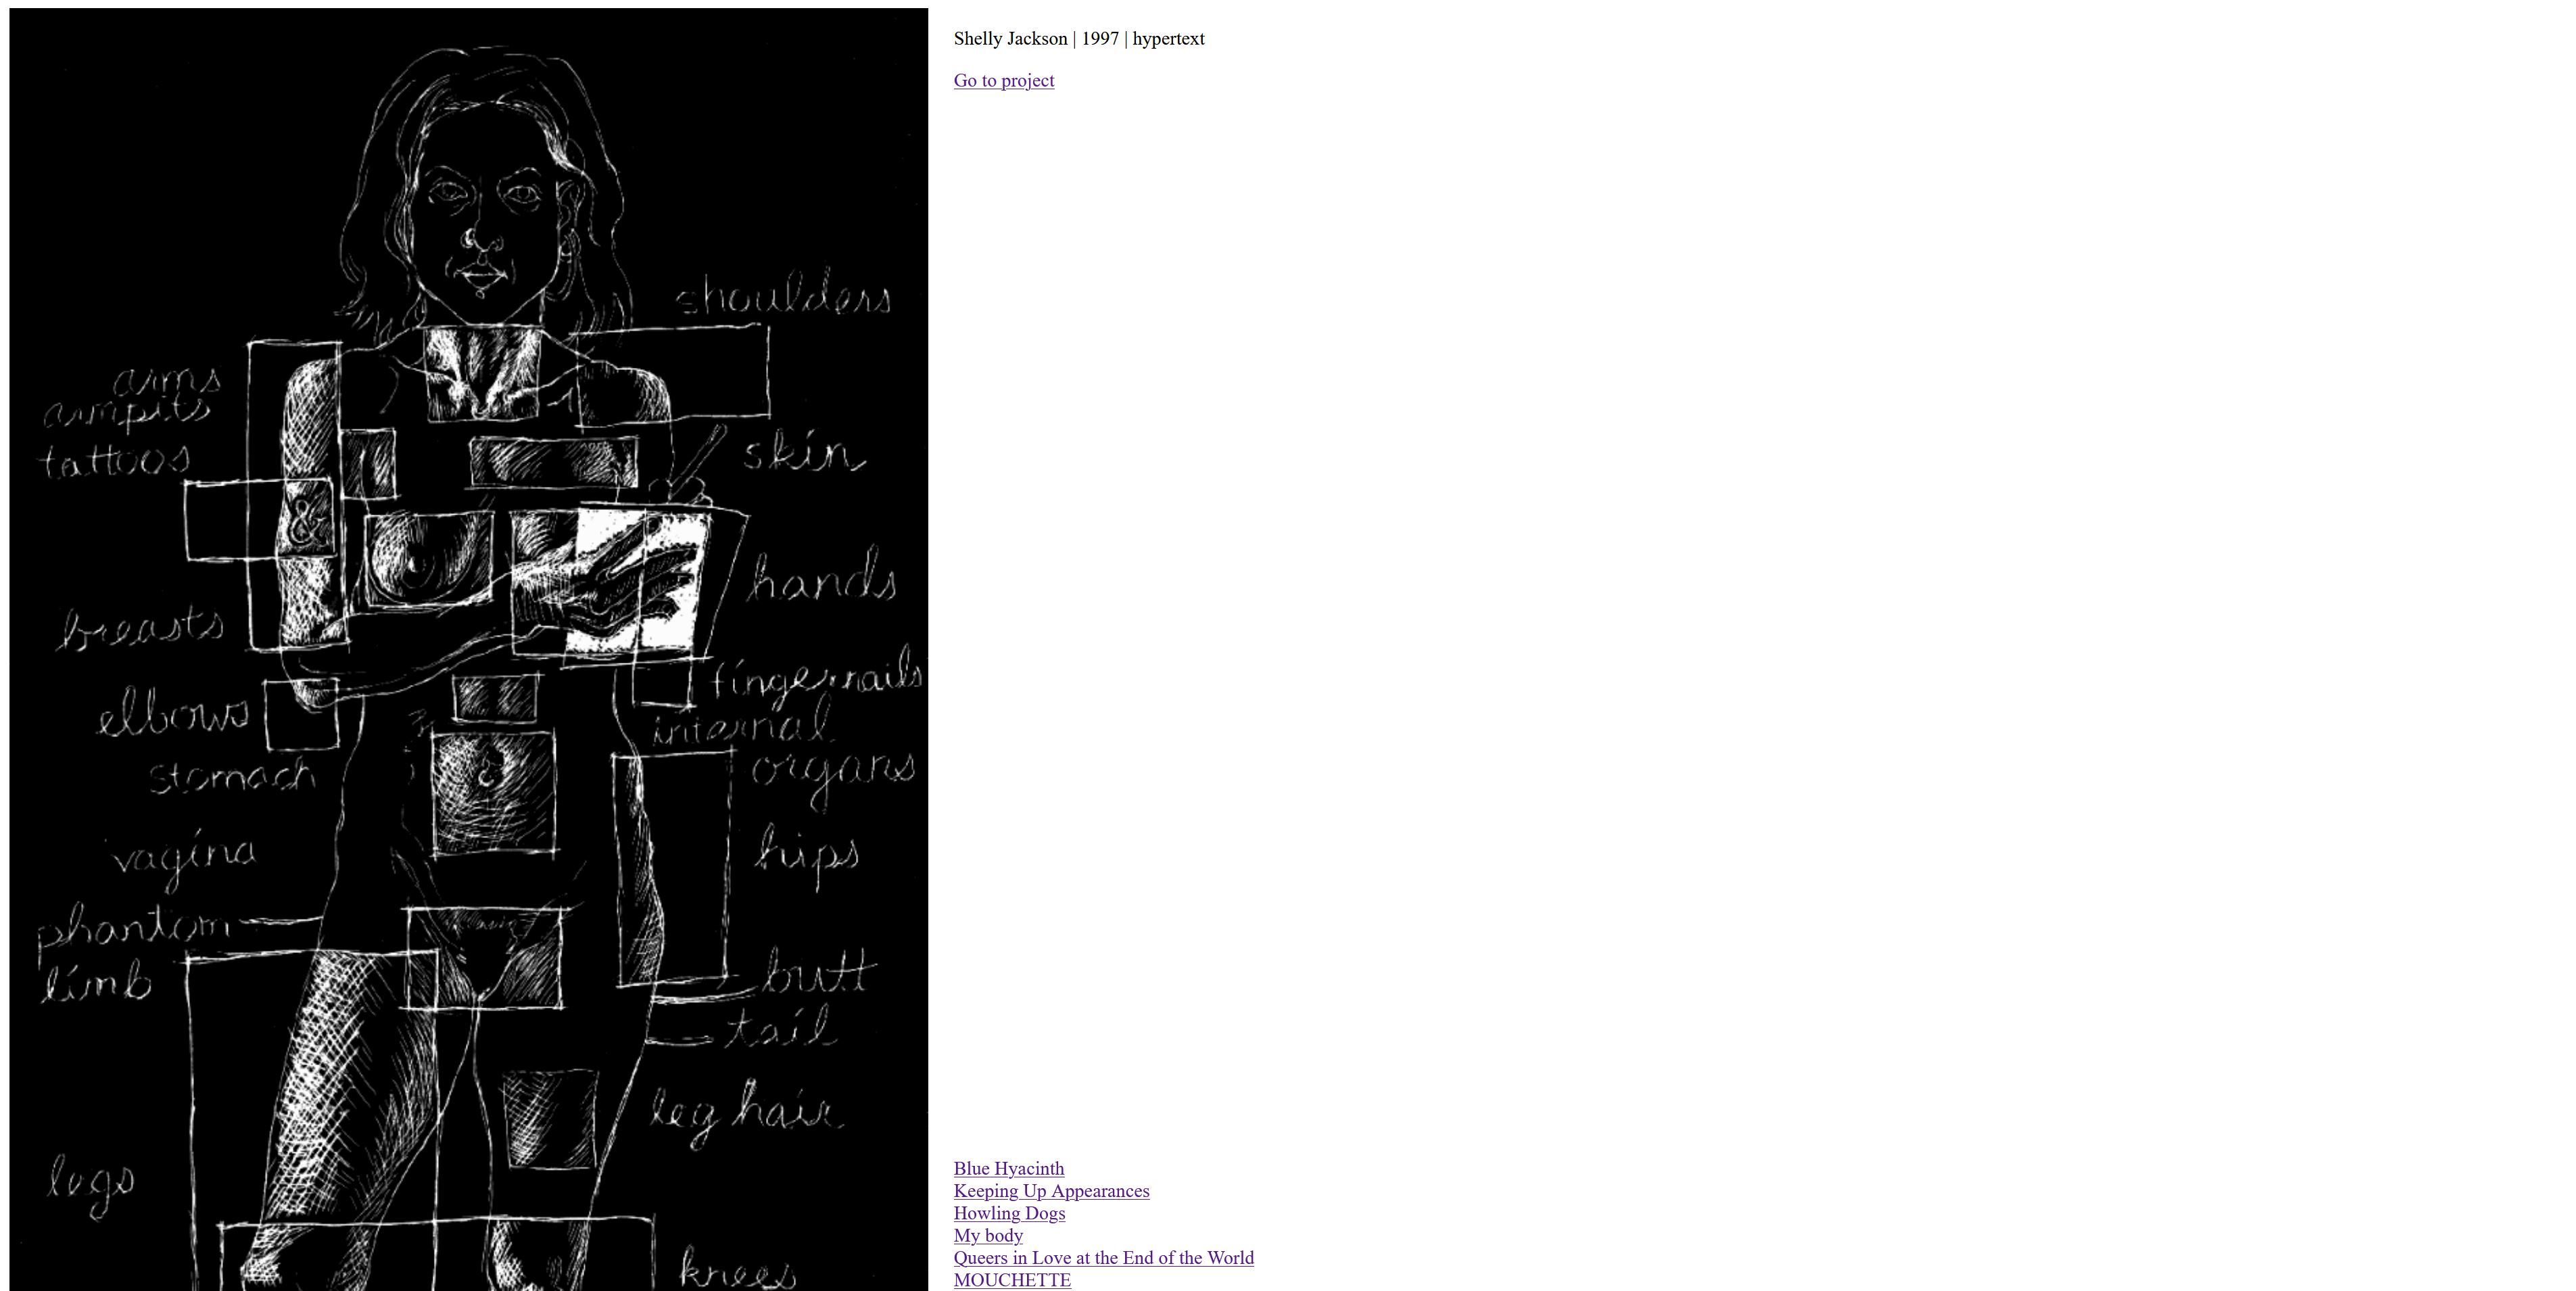 shoulders
arms
armpits
tattoos
skin
&
hands
breasts
fingernails
elbows
internal
organs
stomach
vagina
hips
phantom
limb
butt
tail
leg hair
legs
knees
Shelly Jackson | 1997 | hypertext
Go to project
Blue Hyacinth
Keeping Up Appearances
Howling Dogs
My body
Queers in Love at the End of the World
MOUCHETTE